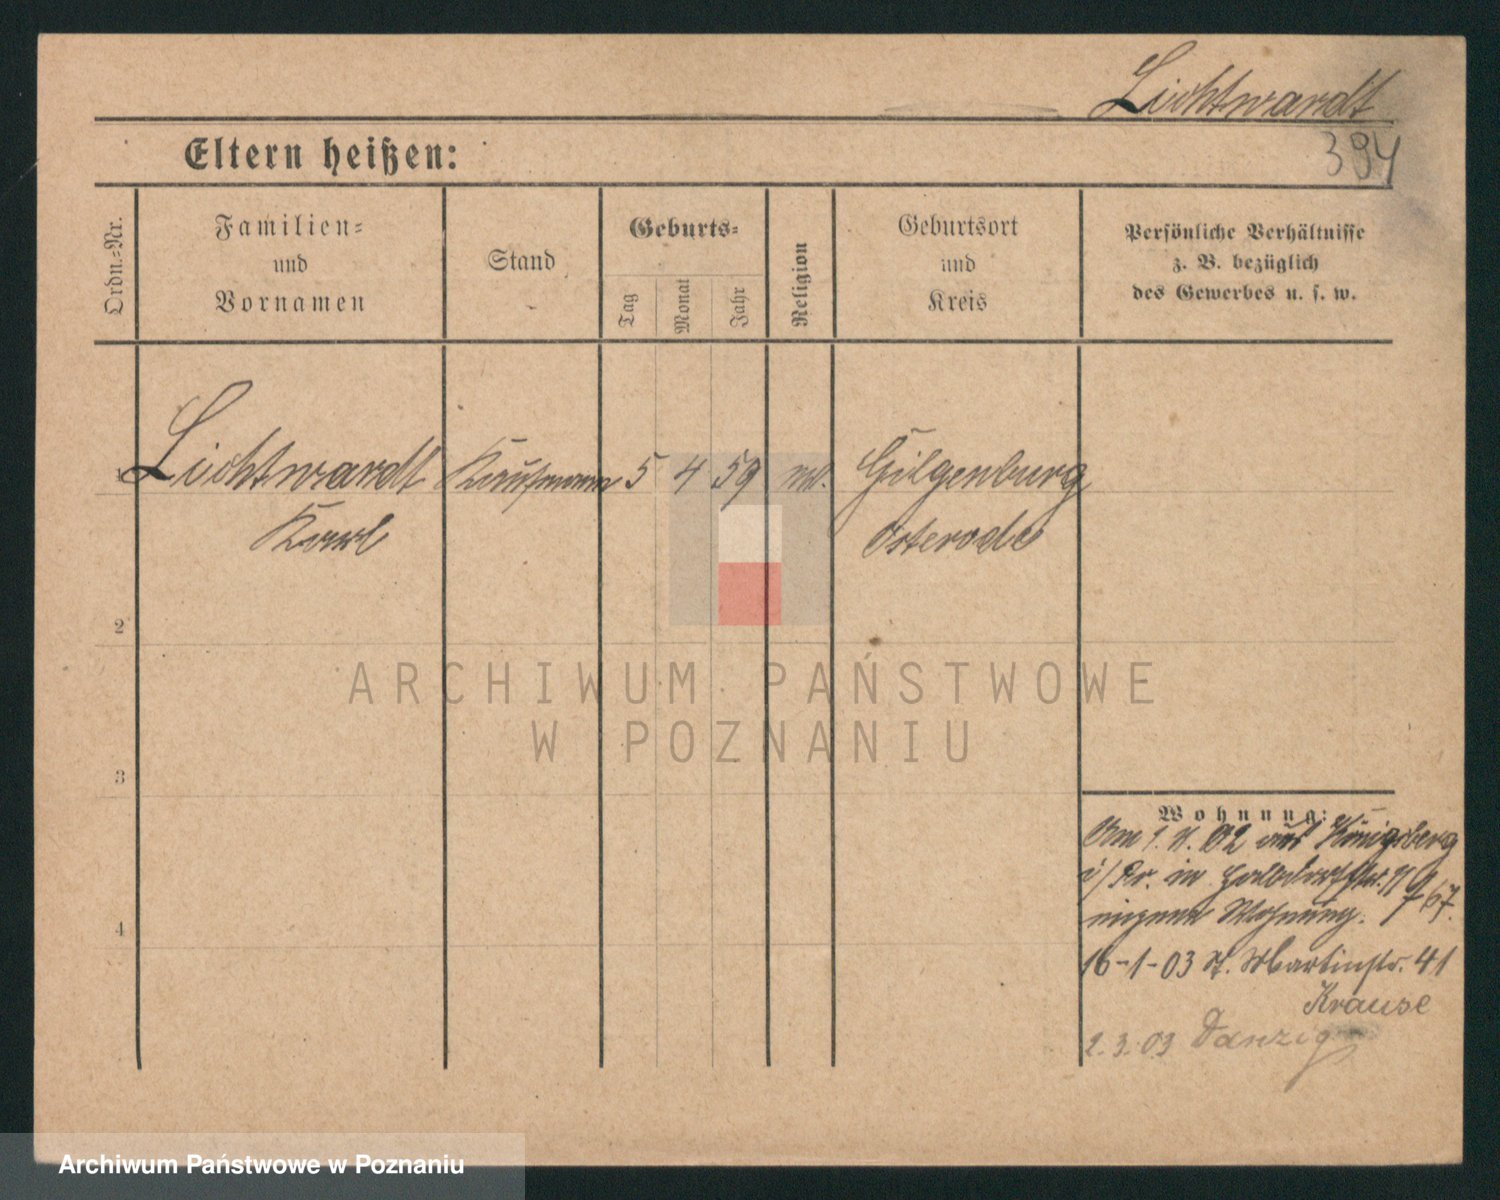 Lichtwardt
394
Eltern heißen:
Ordn.-Nr.
Familien-
und
Vornamen
Stand
Geburts-
Tag
Monat
Jahr
Religion
Geburtsort
und
Kreis
Persönliche Verhältnisse
z. B. bezüglich
des Gewerbes u. s. w.
1 Lichtwardt Kaufmann 5 4 59 Gilgenburg
Karl Osterode
2
3
4
Wohnung:
Am 1. 11. 02 aus Königsberg
i/Pr. in
eigene Wohnung.
16-1-03 St. Martinstr. 41
Krause
2.3.03 Danzig
ARCHIWUM PAŃSTWOWE
W POZNANIU
Archiwum Państwowe w Poznaniu